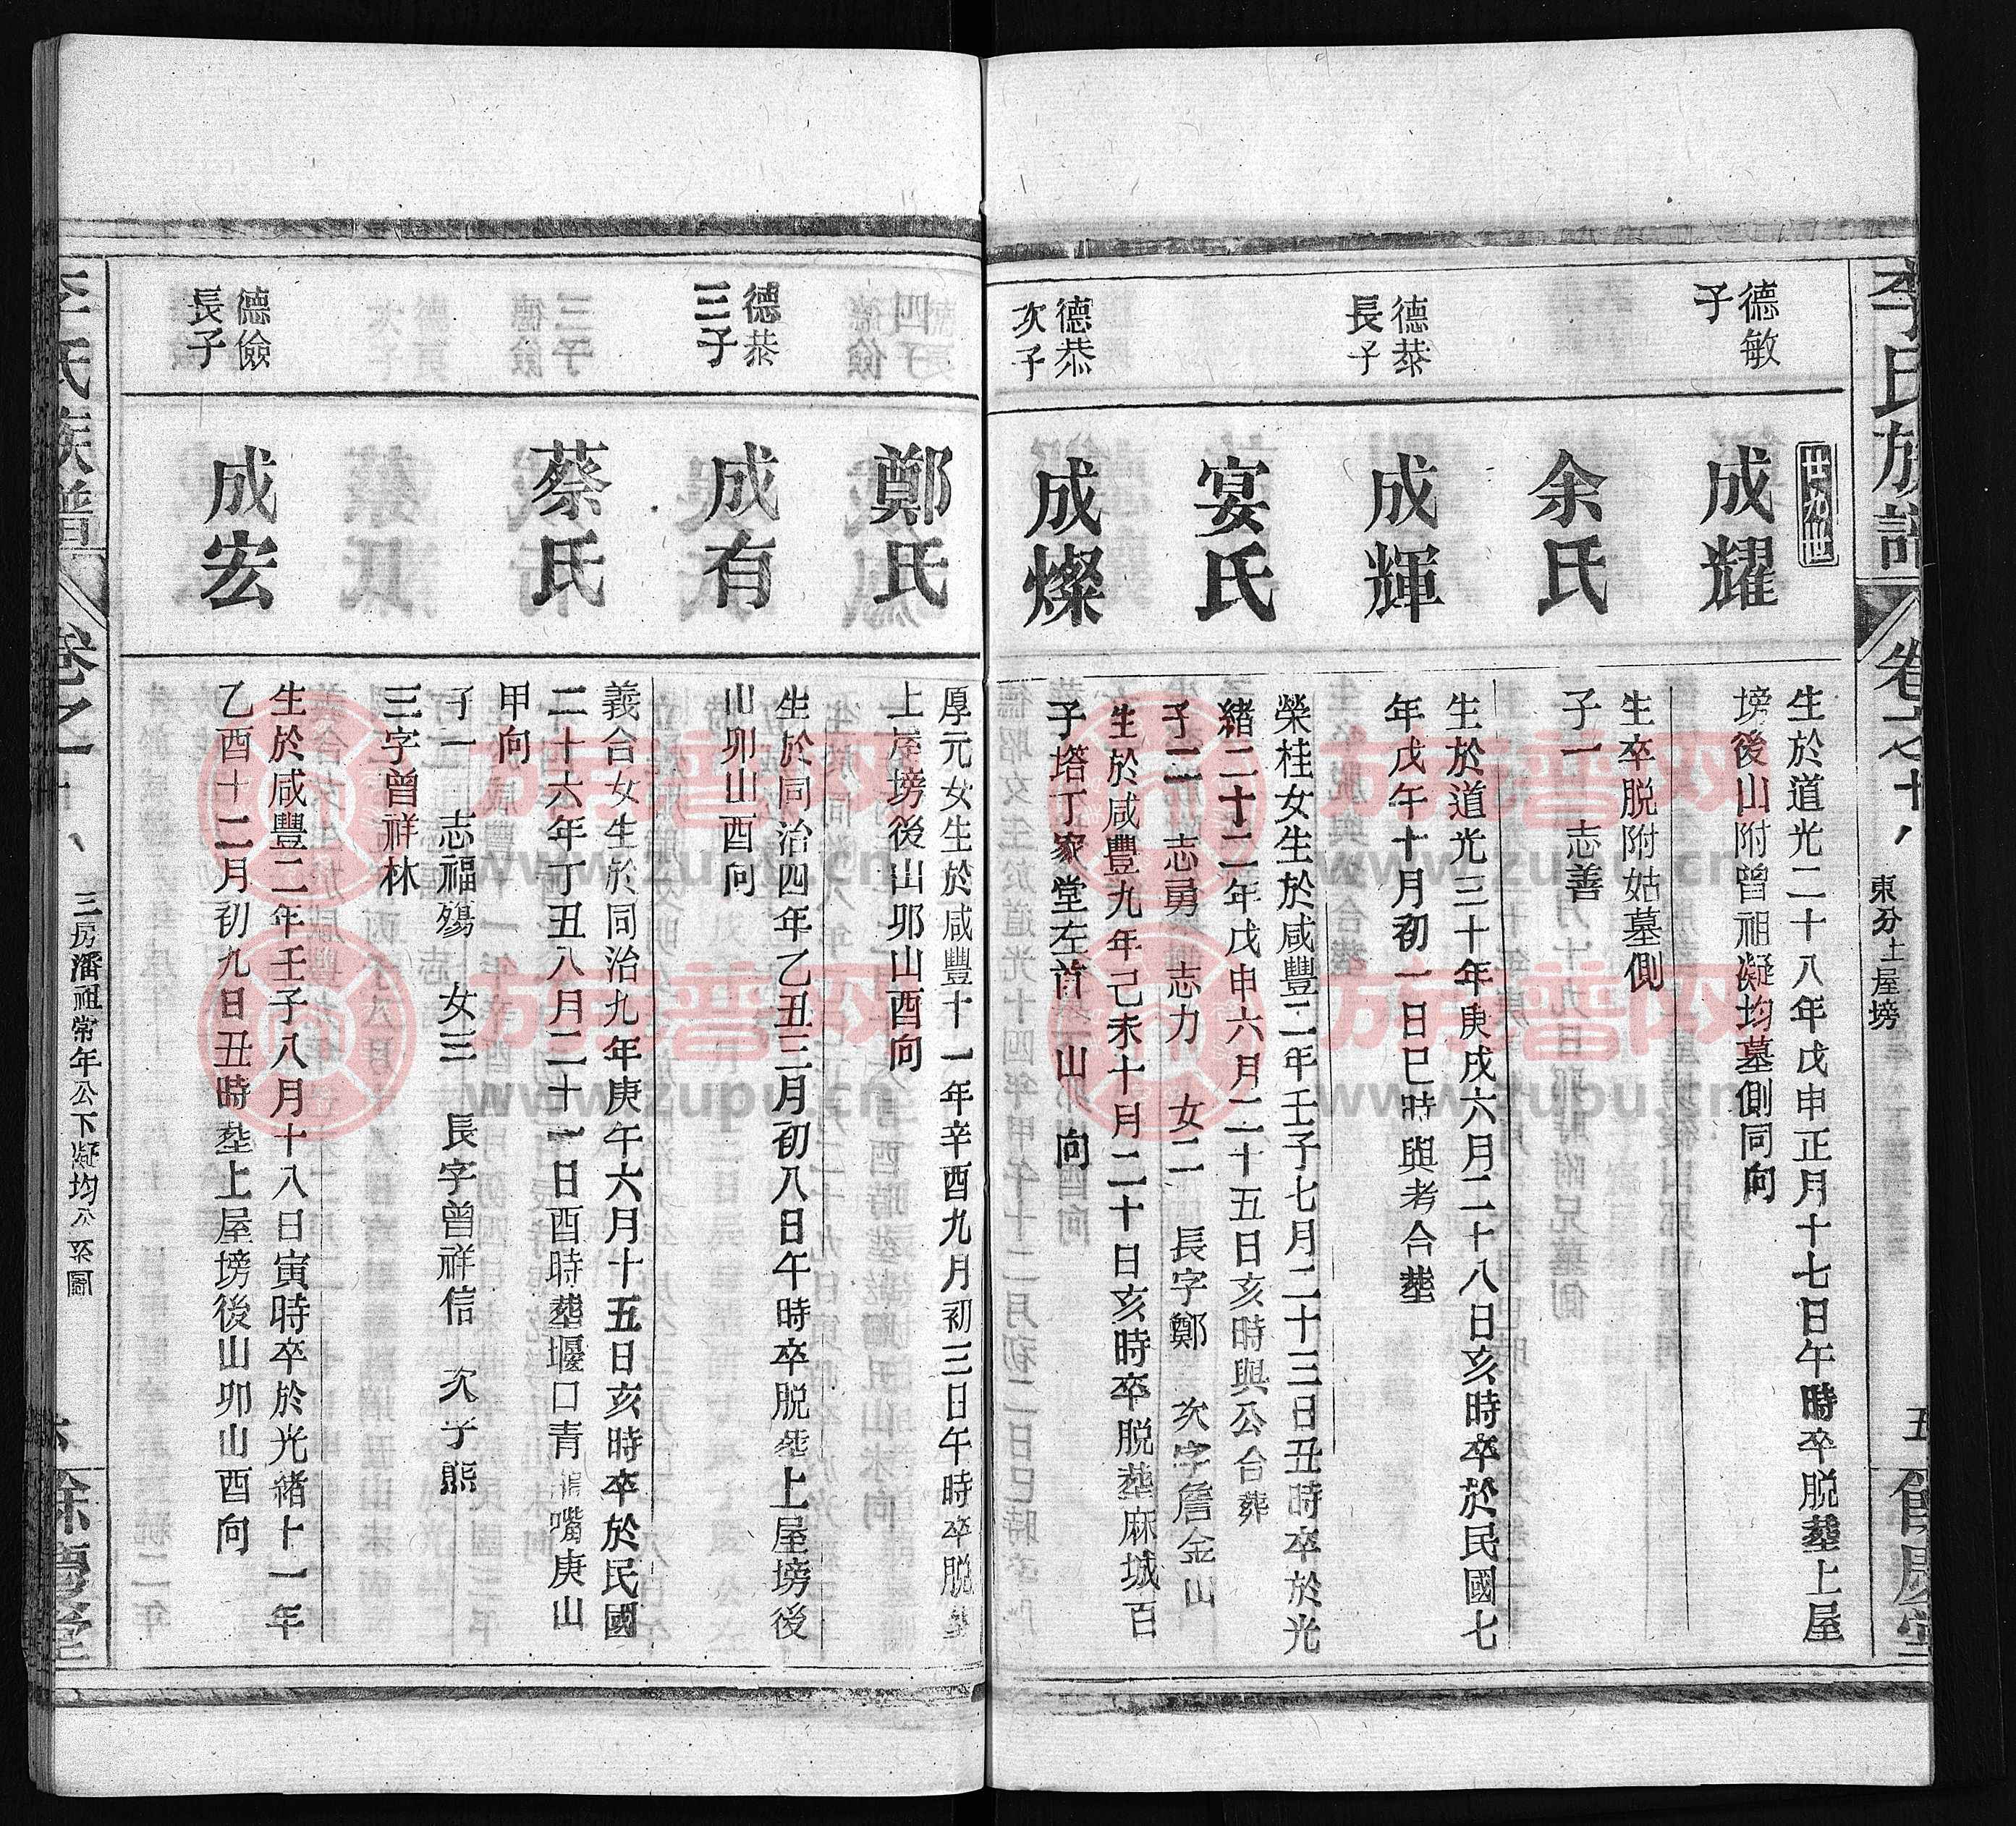 李氏族譜
卷之十八
東分上屋塝
五
餘慶堂
廿九世
德敏
子
成耀
生於道光二十八年戊申正月十七日午時卒脱塟上屋
塝後山附曾祖凝均墓側同向
余氏
生卒脱附姑墓側
子一 志善
德恭
長子
成輝
生於道光三十年庚戌六月二十八日亥時卒於民國七
年戊午十月初一日巳時與考合塟
宴氏
榮桂女生於咸豐二年壬子七月二十三日丑時卒於光
緒二十二年戊申六月二十五日亥時與公合葬
子二 志勇 志力 女二 長字鄭 次字詹金山
德恭
次子
成燦
生於咸豐九年己未十月二十日亥時卒脱塟麻城百
子塔丁家堂左首 山 向
鄭氏
厚元女生於咸豐十一年辛酉九月初三日午時卒脱塟
上屋塝後山卯山酉向
德恭
三子
成有
生於同治四年乙丑三月初八日午時卒脱塟上屋塝後
山卯山酉向
蔡氏
義合女生於同治九年庚午六月十五日亥時卒於民國
二十六年丁丑八月二十一日酉時塟堰口青 嘴庚山
甲向
子一 志福殤 女三 長字曾祥信 次字熊
三字曾祥林
德儉
長子
成宏
生於咸豐二年壬子八月十八日寅時卒於光緒十一年
乙酉十二月初九日丑時塟上屋塝後山卯山酉向
李氏族譜
卷之十八
三房潘祖常年公下凝均公系圖
六
餘慶堂
族譜网
www.zupu.cn
族譜网
www.zupu.cn
族譜网
www.zupu.cn
族譜网
www.zupu.cn